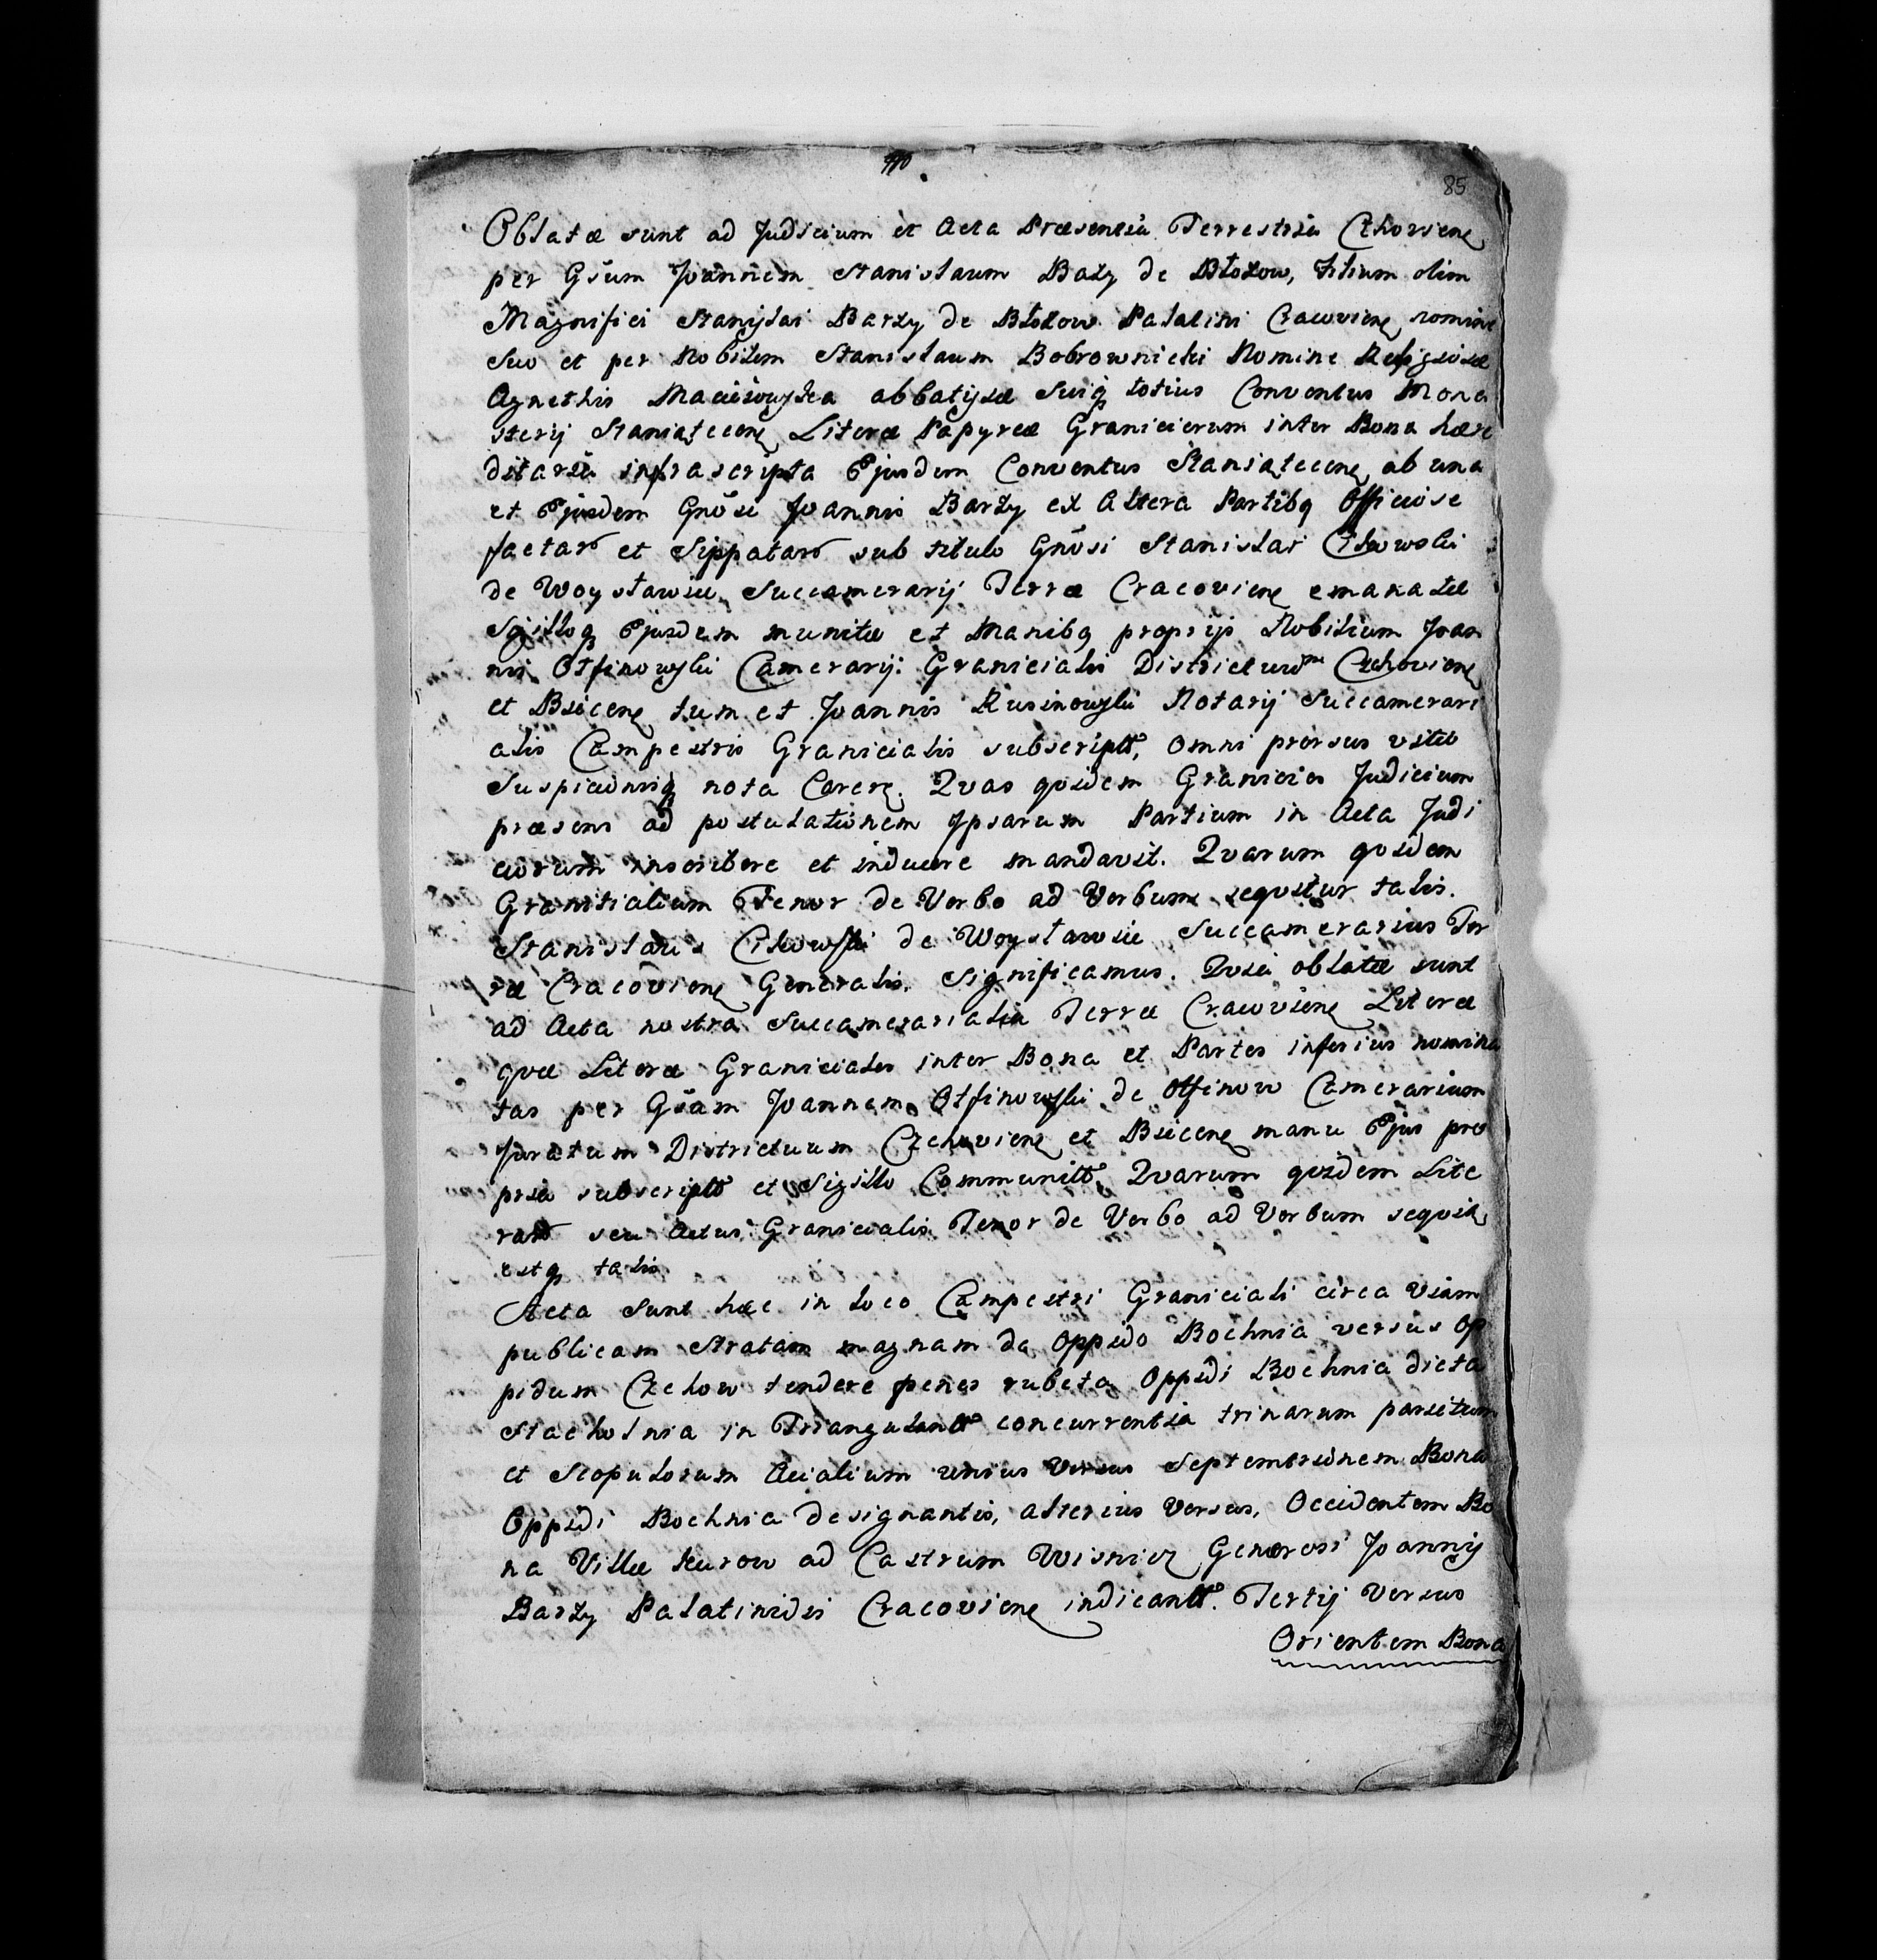 85
Oblatæ sunt ad Judicium et Acta Præsentia Terrestria Czhoviene
per Gsum Joannem Stanislaum Bazy de Błozow, filium olim
Magnifici Stanislai Barzy de Błozow Palatini Cracoviene nomine
Suo et per Nobilem Stanislaum Bobrownicki Nomine Religiosæ
Agnethis Macieiowska abbatissæ Suiq totius Conventus Mona
sterij Staniątecene Literæ Papyreæ Graniciarum inter Bona hære
ditaria infrascripta Ejusdem Conventus Staniątecene ab una
et Ejusdem Gnõsi Joannis Barzy ex Altera Partibq Officiose
factar et Sippatar sub titulo Gnõsi Stanislai Cikowski
de Woysławice Succamerarij Terræ Cracoviene emanatæ
Sigilloq Ejusdem munitæ et Manibq proprijs Nobilium Joan
nis Otfinowski Camerarij Granicialis Districtuum Czchoviene
et Biecene tum et Joannis Rusinowski Notarij Succamerari
alis Campestris Granicialis subscriptæ, omni prorsus vitio
Suspicionisq nota Carere. Qvas qvidem Granicies Judicium
præsens ad postulationem Ipsarum Partium in Acta Judi
ciorum inscribere et inducere mandavit. Qvarum qvidem
Granitialium Tenor de Verbo ad Verbum seqvitur talis.
Stanislaus Cikowski de Woysławice Succamerarius Ter
ræ Cracoviene Generalis. Significamus. Qvia oblatæ sunt
ad Acta nostra Succamerarialia Terræ Cracoviene Literæ
qvæ Literæ Graniciales inter Bona et Partes inferius nomina
tas per Gsam Joannem Otfinowski de Otfinow Camerarium
Juratum Districtuum Czchoviene et Biecene manu Ejus pro
pria subscriptæ et Sigillo Communitæ. Qvarum qvidem Lite
rar seu Actus Granicialis Tenor de Verbo ad Verbum seqvitur
estq talis
Acta Sunt hæc in loco Campestri Graniciali circa viam
publicam Stratam magnam de Oppido Bochnia versus Op
pidum Czchow tendere penes rubeta Oppidi Bochnia dicta
Stacholnia in concurrentia trinarum parietum
et Scopulorum Acialium unius Versus Septemtrionem Bona
Oppidi Bochnia designantis, alterius Versus, Occidentem Bo
na Villæ Kurow ad Castrum Wisnicz Generosi Joannis
Barzy Palatinidis Cracoviene indicant. Tertij Versus
Orientem Bona